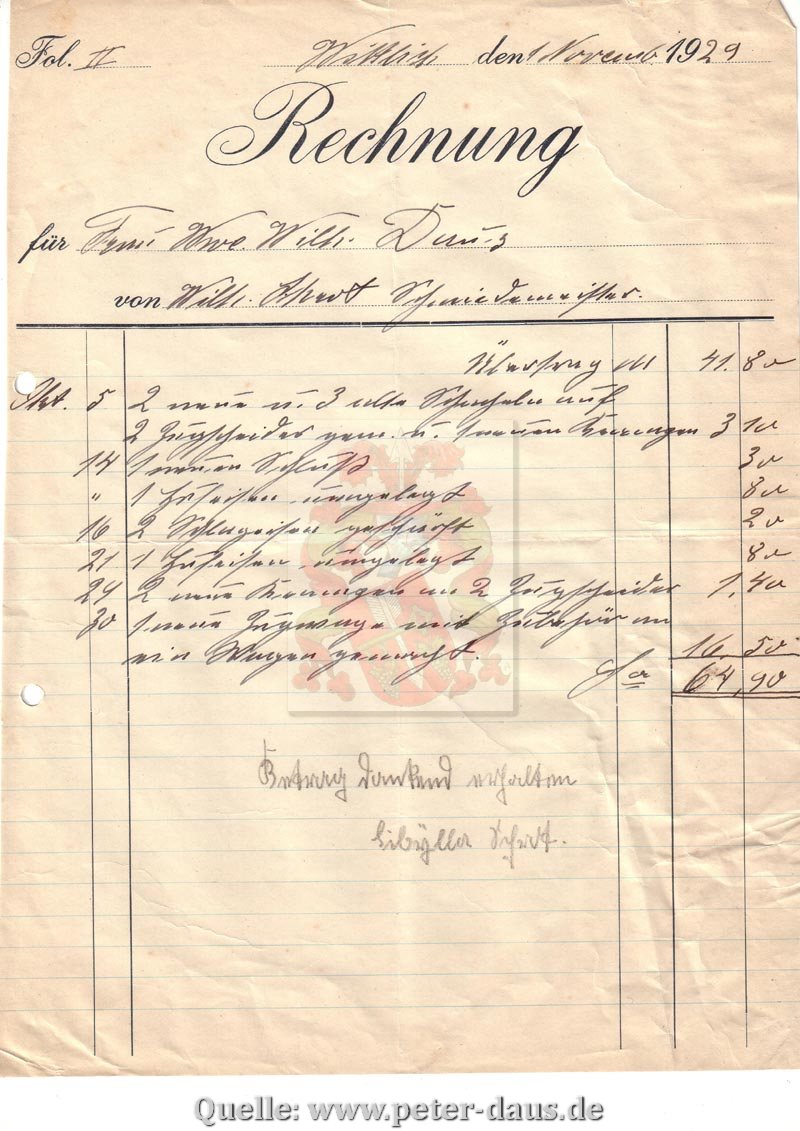 Fol. II Wittlich den 1 Novemb. 1929
Rechnung
für Frau Wwe. Wilh. Daus
von Wilh. Schmiedemeister.
Übertrag M 41.80
Okt. 5 2 neue u. 3 alte auf
2 Zugscheider gem. u. 1 neuen 3 10
14 1 neuen Schluß 30
" 1 Hufeisen umgelegt 80
16 2 geschärft 20
21 1 Hufeisen umgelegt 80
24 2 neue an 2 Zugscheider 1,40
30 1 neue Zugwage mit Zubehör an
ein Wagen gemacht. 16.50
Sa 64,90
Betrag dankend erhalten
Sibylla
Quelle: www.peter-daus.de